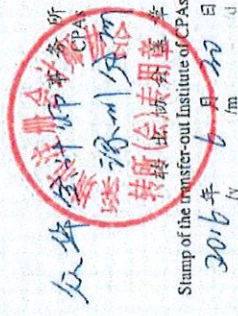 众华会计师事务所
CPAs
深圳分所
转所(会)专用章
转出协会盖章
Stamp of the transfer-out Institute of CPAs
2016年 6月 30日
/y /m /d